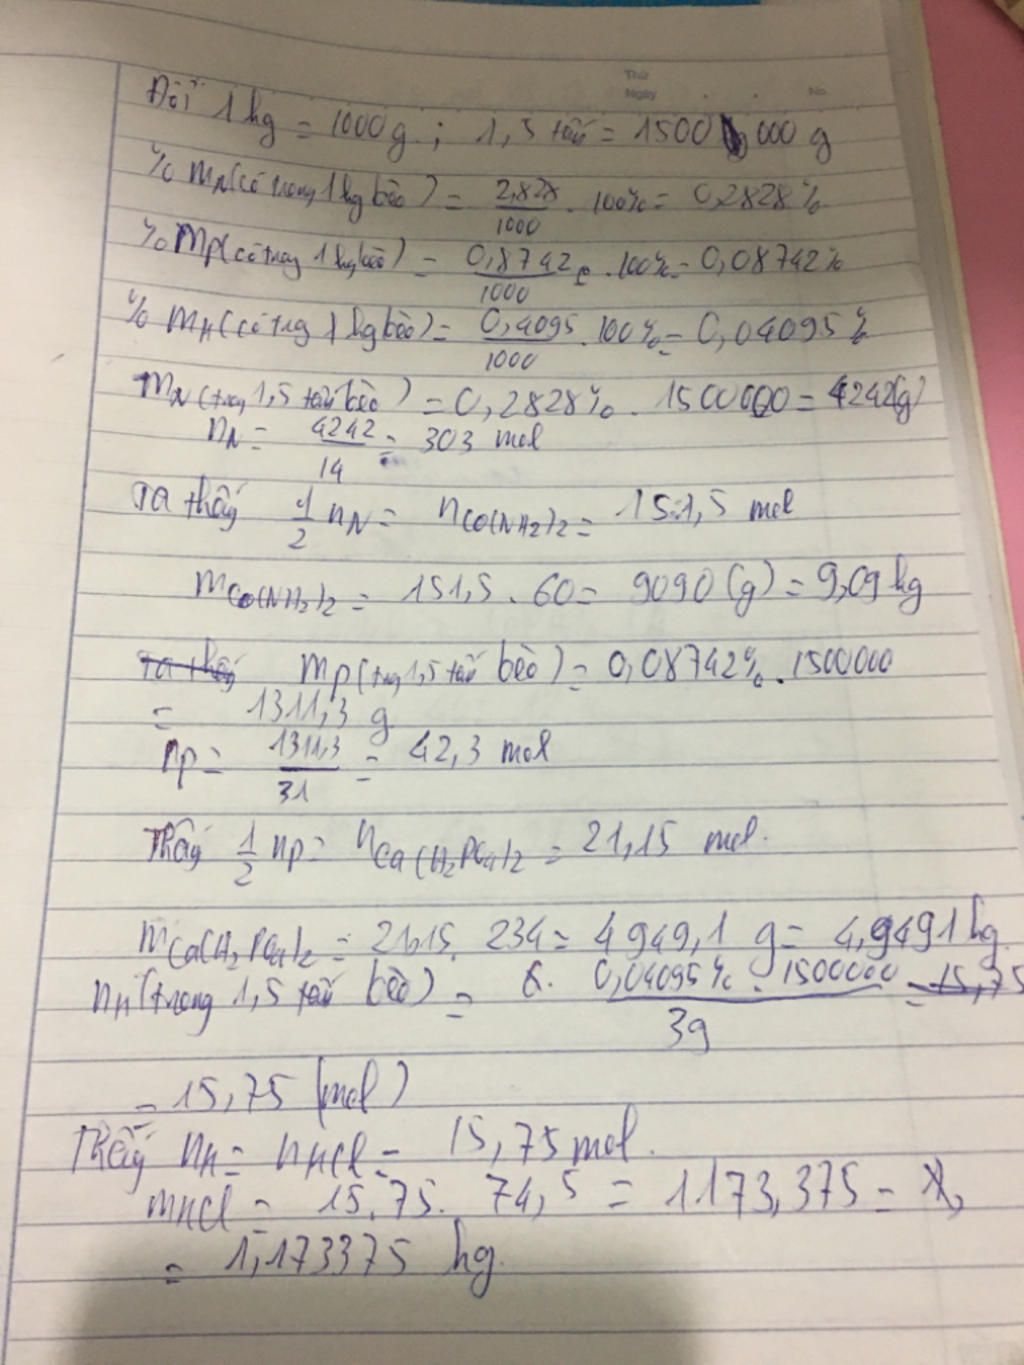 Thứ
Ngày . . No
Đổi 1 kg = 1000 g ; 1,5 tấn = 1500 000 g
% mN (có trong 1 kg bèo) = 2,828/1000 . 100% = 0,2828 %
% mP (có trong 1 kg bèo) = 0,8742/1000 . 100% = 0,08742 %
% mK (có trog 1 kg bèo) = 0,4095/1000 . 100% = 0,04095 %
mN (trog 1,5 tấn bèo) = 0,2828% . 1500000 = 4242(g)
nN = 4242/14 = 303 mol
Ta thấy 1/2 nN = nCO(NH2)2 = 151,5 mol
mCO(NH2)2 = 151,5 . 60 = 9090 (g) = 9,09 kg
Ta thấy mP (trog 1,5 tấn bèo) = 0,08742% . 1500000
= 1311,3 g
nP = 1311,3/31 = 42,3 mol
Thấy 1/2 nP = nCa(H2PO4)2 = 21,15 mol.
mCa(H2PO4)2 = 21,15 . 234 = 4949,1 g = 4,9491 kg
nK (trong 1,5 tấn bèo) = 0,04095% . 1500000/39 = 15,75
= 15,75 (mol)
Thấy nK = nKCl = 15,75 mol.
mKCl = 15,75 . 74,5 = 1173,375 =
= 1,173375 kg